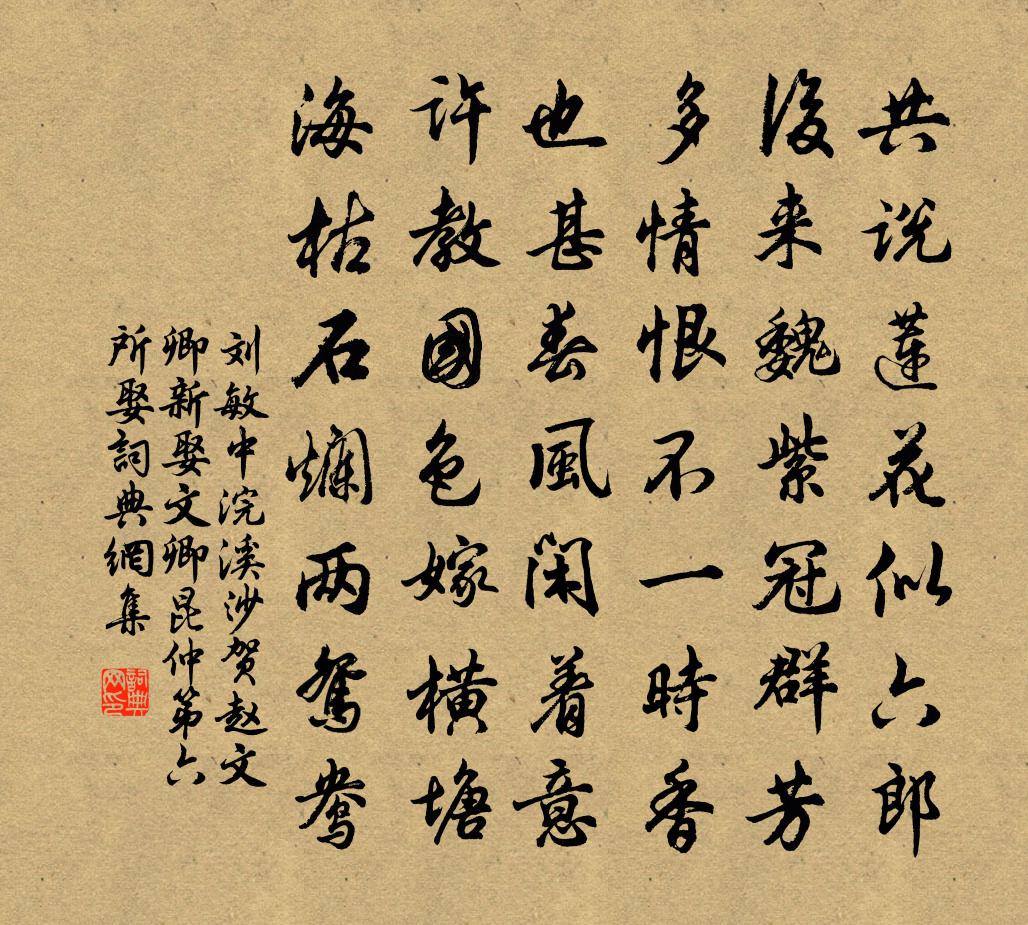 共说蓮花似六郎
後来魏紫冠群芳
多情恨不一時香
也甚春風閑着意
许教國色嫁横塘
海枯石爛两鸳鸯
刘敏中浣溪沙贺赵文
卿新娶文卿昆仲第六
所娶詞典網集
詞典
网印